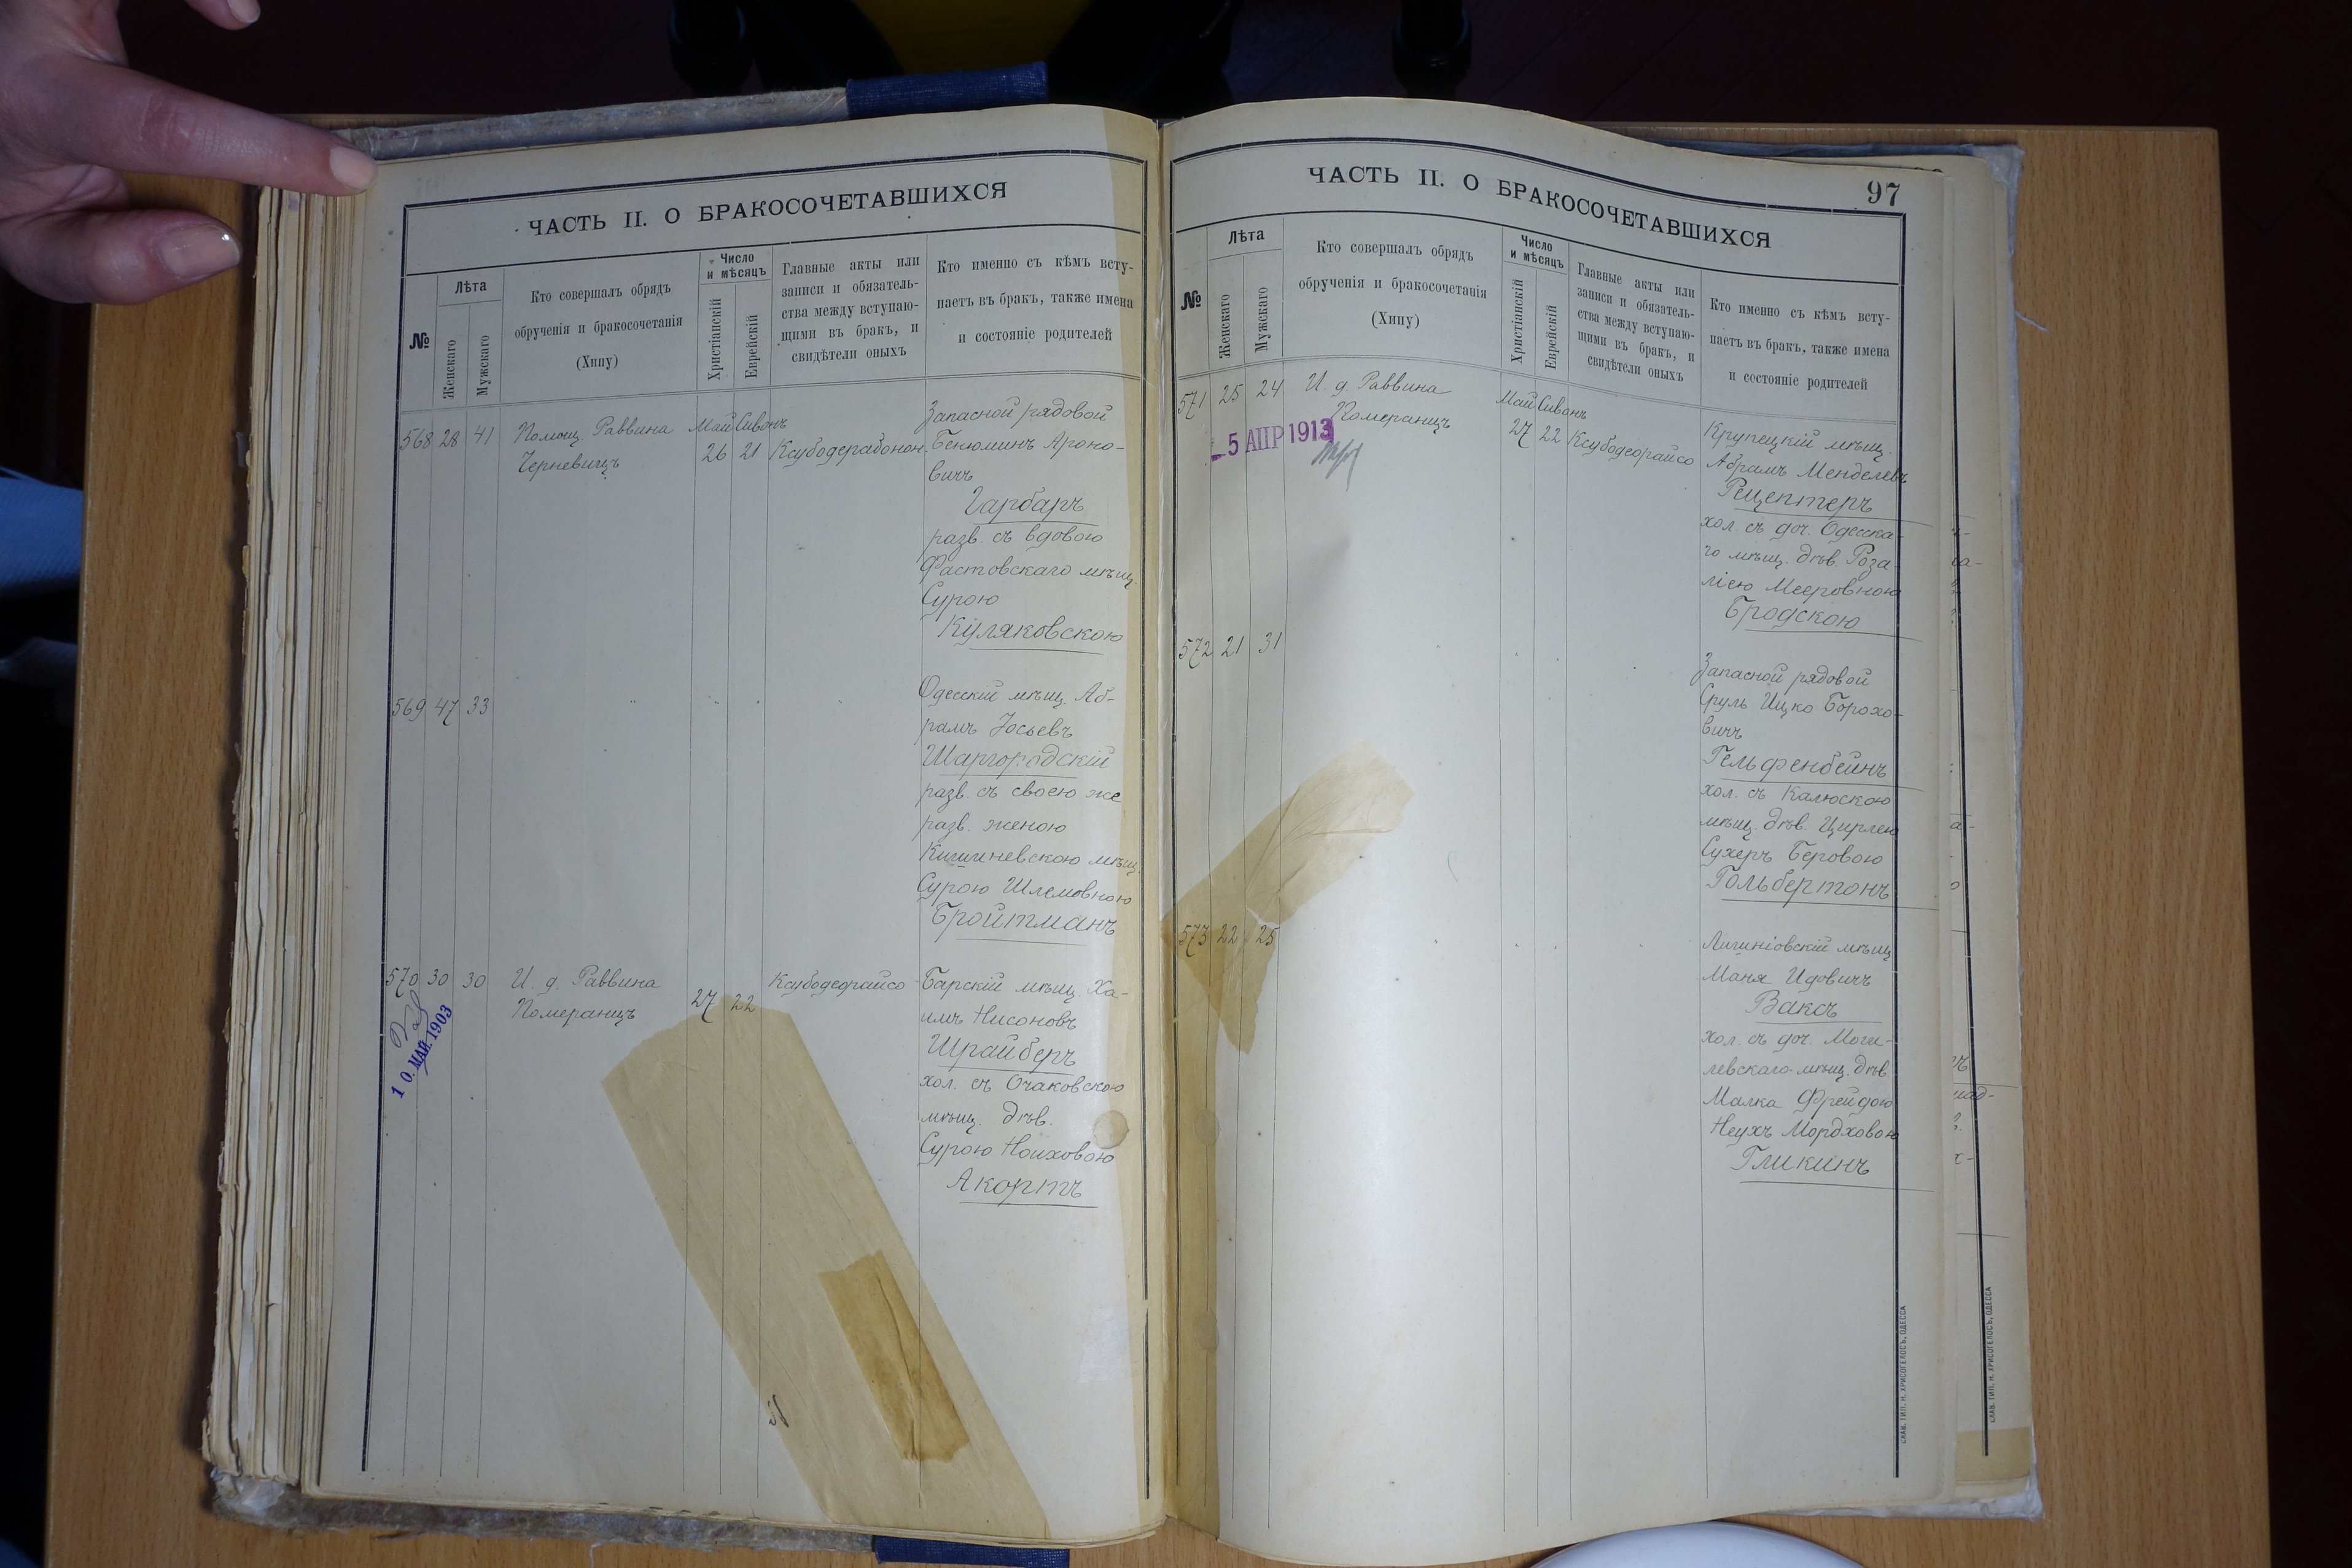 ЧАСТЬ II. О БРАКОСОЧЕТАВШИХСЯ
№
Лѣта
Женскаго
Мужскаго
Кто совершалъ обрядъ
обрученія и бракосочетанія
(Хипу)
Число
и мѣсяцъ
Христіанскій
Еврейскій
Главные акты или
записи и обязатель-
ства между вступаю-
щими въ бракъ, и
свидѣтели оныхъ
Кто именно съ кѣмъ всту-
паетъ въ бракъ, также имена
и состояніе родителей
568 28 41
Помощ. Раввина
Черневицъ
Май Сивонъ
26 21
Ксубодерабонон
Запасной рядовой
Бенюминъ Ароно-
вичъ
Гарбаръ
разв. съ вдовою
Фастовскаго мѣщ.
Сурою
Куляковскою
569 47 33
" " "
Одесскій мѣщ. Аб-
рамъ Іосьевъ
Шаргородскій
разв. съ своею же
разв. женою
Кишиневскою мѣщ.
Сурою Шлемовною
Бройтманъ
570 30 30
И. д. Раввина
Померанцъ
27 22
Ксубодеорайсо
Барскій мѣщ. Ха-
имъ Нисоновъ
Шрайберъ
хол. съ Очаковскою
мѣщ. дѣв.
Сурою Ноиховою
Акортъ
10. МАЙ. 1903
97
ЧАСТЬ II. О БРАКОСОЧЕТАВШИХСЯ
№
Лѣта
Женскаго
Мужскаго
Кто совершалъ обрядъ
обрученія и бракосочетанія
(Хипу)
Число
и мѣсяцъ
Христіанскій
Еврейскій
Главные акты или
записи и обязатель-
ства между вступаю-
щими въ бракъ, и
свидѣтели оныхъ
Кто именно съ кѣмъ всту-
паетъ въ бракъ, также имена
и состояніе родителей
571 25 24
И. д. Раввина
Померанцъ
5 АПР 1913
Май Сивонъ
27 22
Ксубодеорайсо
Крупецкій мѣщ.
Абрамъ Менделевъ
Рецептеръ
хол. съ доч. Одесска-
го мѣщ. дѣв. Роза
ліею Мееровною
Бродскою
572 21 31
Запасной рядовой
Сруль Ицко Борохо-
вичъ
Гельфенбейнъ
хол. съ Калюскою
мѣщ. дѣв. Цирлею
Сухеръ Беровою
Гольбертонъ
573 22 25
мѣщ
Маня Идовичъ
Ваксъ
хол. съ доч. Моги-
левскаго мѣщ. дѣв.
Малка Фрейдою
Неухъ Мордховою
Гликинъ
СЛАВ. ТИП. Н. ХРИСОГЕЛОСЪ, ОДЕССА
СЛАВ. ТИП. Н. ХРИСОГЕЛОСЪ, ОДЕССА